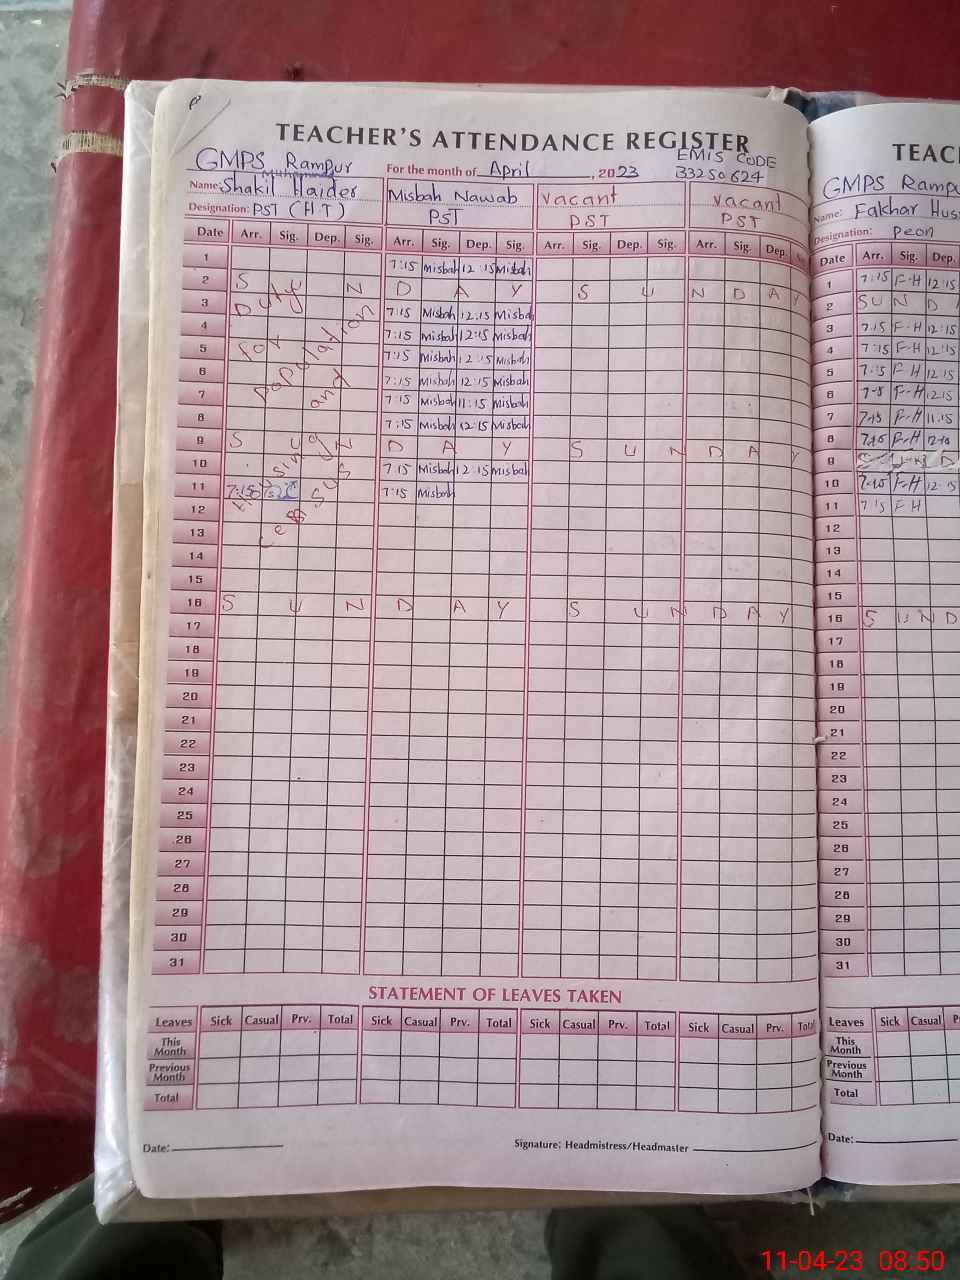 TEACHER'S ATTENDANCE REGISTER
GMPS Rampur For the month of April, 2023 EMIS CODE
33250624
Muhammad
Name: Shakil Haider Misbah Nawab vacant vacant
Designation: PST (H.T) PST PST PST
Date Arr. Sig. Dep. Sig. Arr. Sig. Dep. Sig. Arr. Sig. Dep. Sig. Arr. Sig. Dep.
1 7:15 Misbah 12:15 Misbah
2 S U N D A Y S U N D A Y
3 7:15 Misbah 12:15 Misbah
4 7:15 Misbah 12:15 Misbah
5 7:15 Misbah 12:15 Misbah
6 7:15 Misbah 12:15 Misbah
7 7:15 Misbah 11:15 Misbah
8 7:15 Misbah 12:15 Misbah
9 S U N D A Y S U N D A Y
10 7:15 Misbah 12:15 Misbah
11 7:15 7:15 Misbah
12
13
14
15
16 S U N D A Y S U N D A Y
17
18
19
20
21
22
23
24
25
26
27
28
29
30
31
Duty for population and
Housing
Census
STATEMENT OF LEAVES TAKEN
Leaves Sick Casual Prv. Total Sick Casual Prv. Total Sick Casual Prv. Total Sick Casual Prv. Total
This Month
Previous Month
Total
Date: Signature: Headmistress/Headmaster
TEAC
GMPS Rampu
Name: Fakhar Hus
Designation: Peon
Date Arr. Sig. Dep.
1 7:15 F-H 12:15
2 SUN D
3 7:15 F-H 12:15
4 7:15 F-H 12:15
5 7:15 F-H 12:15
6 7:15 F-H 12:15
7 7:15 F-H 11:15
8 7:15 F-H 12:15
9 S U N D
10 7:15 F-H 12:15
11 7:15 F-H
12
13
14
15
16 S U N D
17
18
19
20
21
22
23
24
25
26
27
28
29
30
31
Leaves Sick Casual
This Month
Previous Month
Total
Date:
11-04-23 08:50